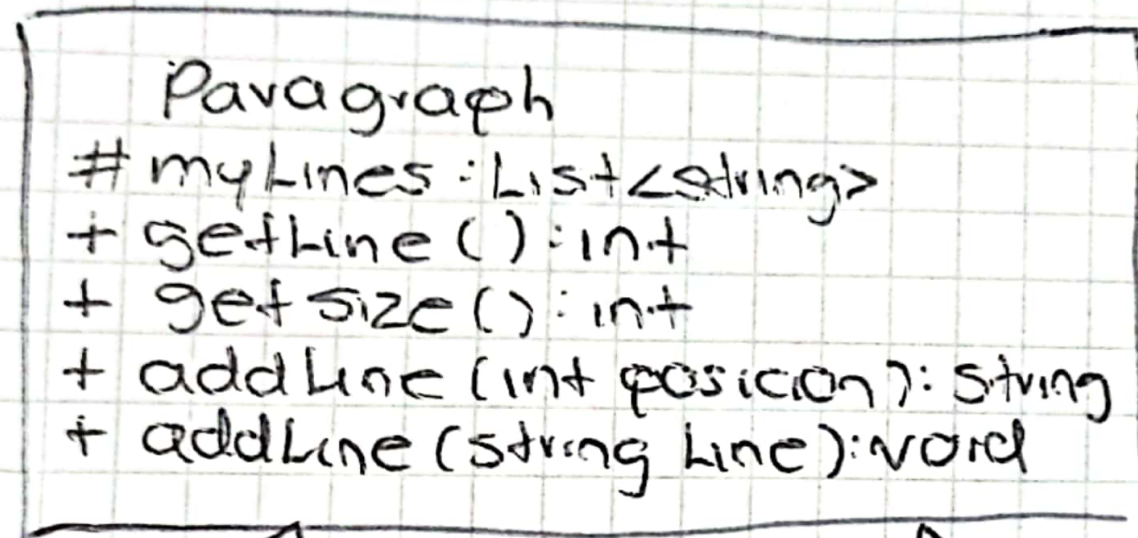 Paragraph
# myLines : List<string>
+ getLine () : int
+ getsize () : int
+ addLine (int posicion) : string
+ addLine (string Line) : void